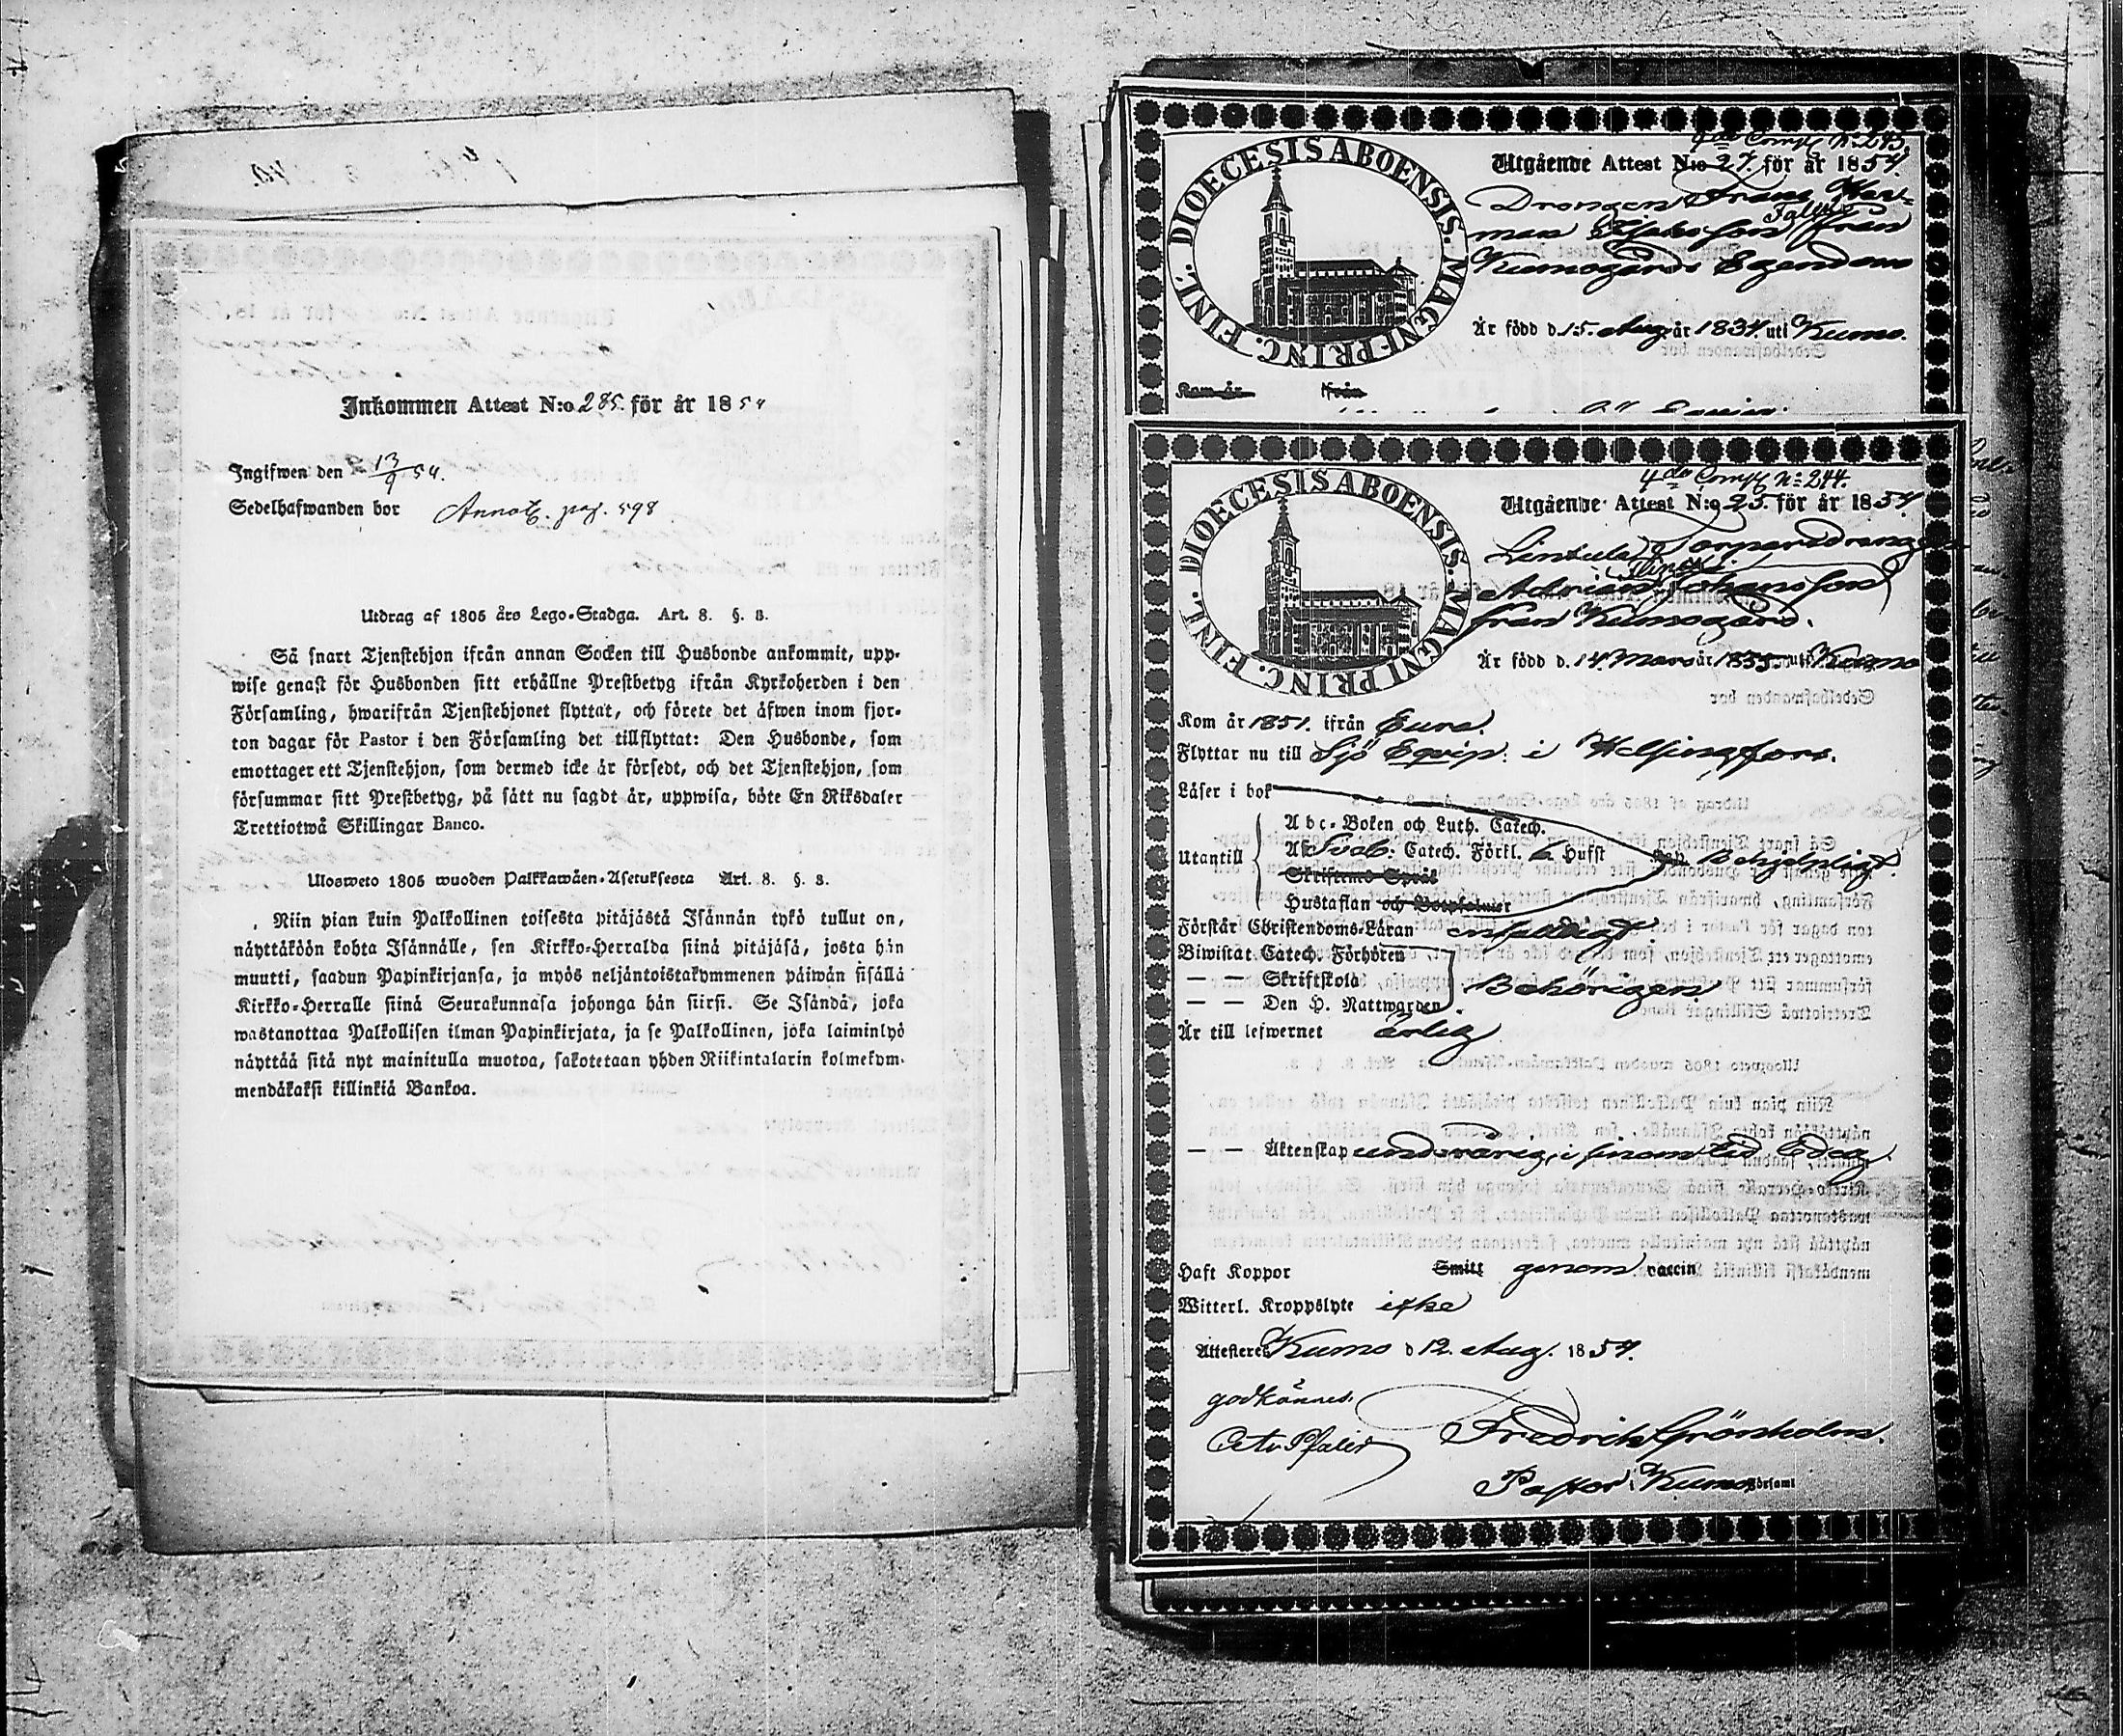 Inkommen Attest N:o 285. för år 1854
Ingifwen den 13/9 54.
Sedelhafwanden bor Annot. pag. 598
Utdrag af 1805 års Lego-Stadga. Art. 8. §. 8.
Så snart Tjenstehjon ifrån annan Socken till Husbonde ankommit, upp-
wise genast för Husbonden sitt erhållne Prestbetyg ifrån Kyrkoherden i den
Församling, hwarifrån Tjenstehjonet flyttat, och förete det äfwen inom fjor-
ton dagar för Pastor i den Församling det tillflyttat: Den Husbonde, som
emottager ett Tjenstehjon, som dermed icke är försedt, och det Tjenstehjon, som
försummar sitt Prestbetyg, på sätt nu sagdt är, uppwisa, böte En Riksdaler
Trettiotwå Skillingar Banco.
Ulosweto 1805 wuoden Palkkawäen-Asetuksesta Art. 8. §. 8.
Niin pian kuin Palkollinen toisesta pitäjästä Isännän tykö tullut on,
näyttäköön kohta Isännälle, sen Kirkko-Herralda siinä pitäjäsä, josta hän
muutti, saadun Papinkirjansa, ja myös neljäntoistakymmenen päiwän sisällä
Kirkko-Herralle siinä Seurakunnasa johonga hän siirsi. Se Isändä, joka
wastanottaa Palkollisen ilman Papinkirjata, ja se Palkollinen, joka laiminlyö
näyttää sitä nyt mainitulla muotoa, sakotetaan yhden Riikintalarin kolmekym-
mendäkaksi killinkiä Bankoa.
4de Comp N:o 245.
DIOECESIS ABOENSIS. MAGNI PRINC. FINL.
Utgående Attest N:o 27. för år 1854.
Drengen Frans Her-
man från
Kumogårds Egendom
Är född d. 15. Aug. år 1834. uti Kumo.
Kom år ifrån
4de Comp N:o 244.
DIOECESIS ABOENSIS. MAGNI PRINC. FINL.
Utgående Attest N:o 25. för år 1854.
Lintula Torparedrengen
Adrian Johansson
från Kumogård.
Är född d. 14. Mars år 1835. uti Kumo
Kom år 1851. ifrån Eura.
Flyttar nu till Sjö Eqvip. i Helsingfors.
Läser i bok
Abc-Boken och Luth. Catech.
Utantill Af Sveb. Catech. Förkl. 6 Hufst Behjelpligt.
Skriftens Språk
Hustaflan och Botpsalmer
Förstår Christendoms-Läran
Biwistat Catech. Förhören
— — Skriftskola Behörigen.
— — Den H. Nattwarden
Är till lefwernet ärlig
— — Äktenskap
Haft Koppor Smitt genom vaccin
Witterl. Kroppslyte icke
Attesteras Kumo d 12. Aug. 1854.
godkännes.
Fredrik Grönholm.
Pastor i Kumo Församl